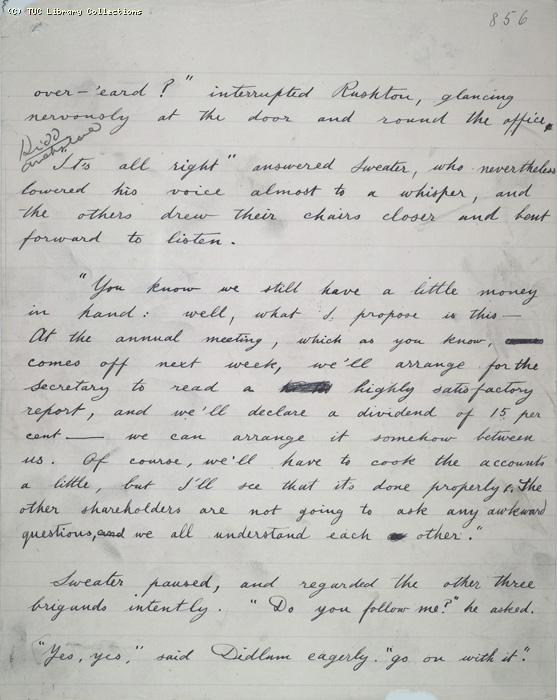 (C) TUC Library Collections
856
over-'eard?" interrupted Rushton, glancing
nervously at the door and round the office.
"It's all right" answered Sweater, who nevertheless
lowered his voice almost to a whisper, and
the others drew their chairs closer and bent
forward to listen.
"You know we still have a little money
in hand: well, what I propose is this—
At the annual meeting, which as you know,
comes off next week, we'll arrange for the
Secretary to read a highly satisfactory
report, and we'll declare a dividend of 15 per
cent — we can arrange it somehow between
us. Of course, we'll have to cook the accounts
a little, but I'll see that it's done properly. The
other shareholders are not going to ask any awkward
questions, and we all understand each other."
Sweater paused, and regarded the other three
brigands intently. "Do you follow me?" he asked.
"Yes, yes," said Didlum eagerly. "go on with it".